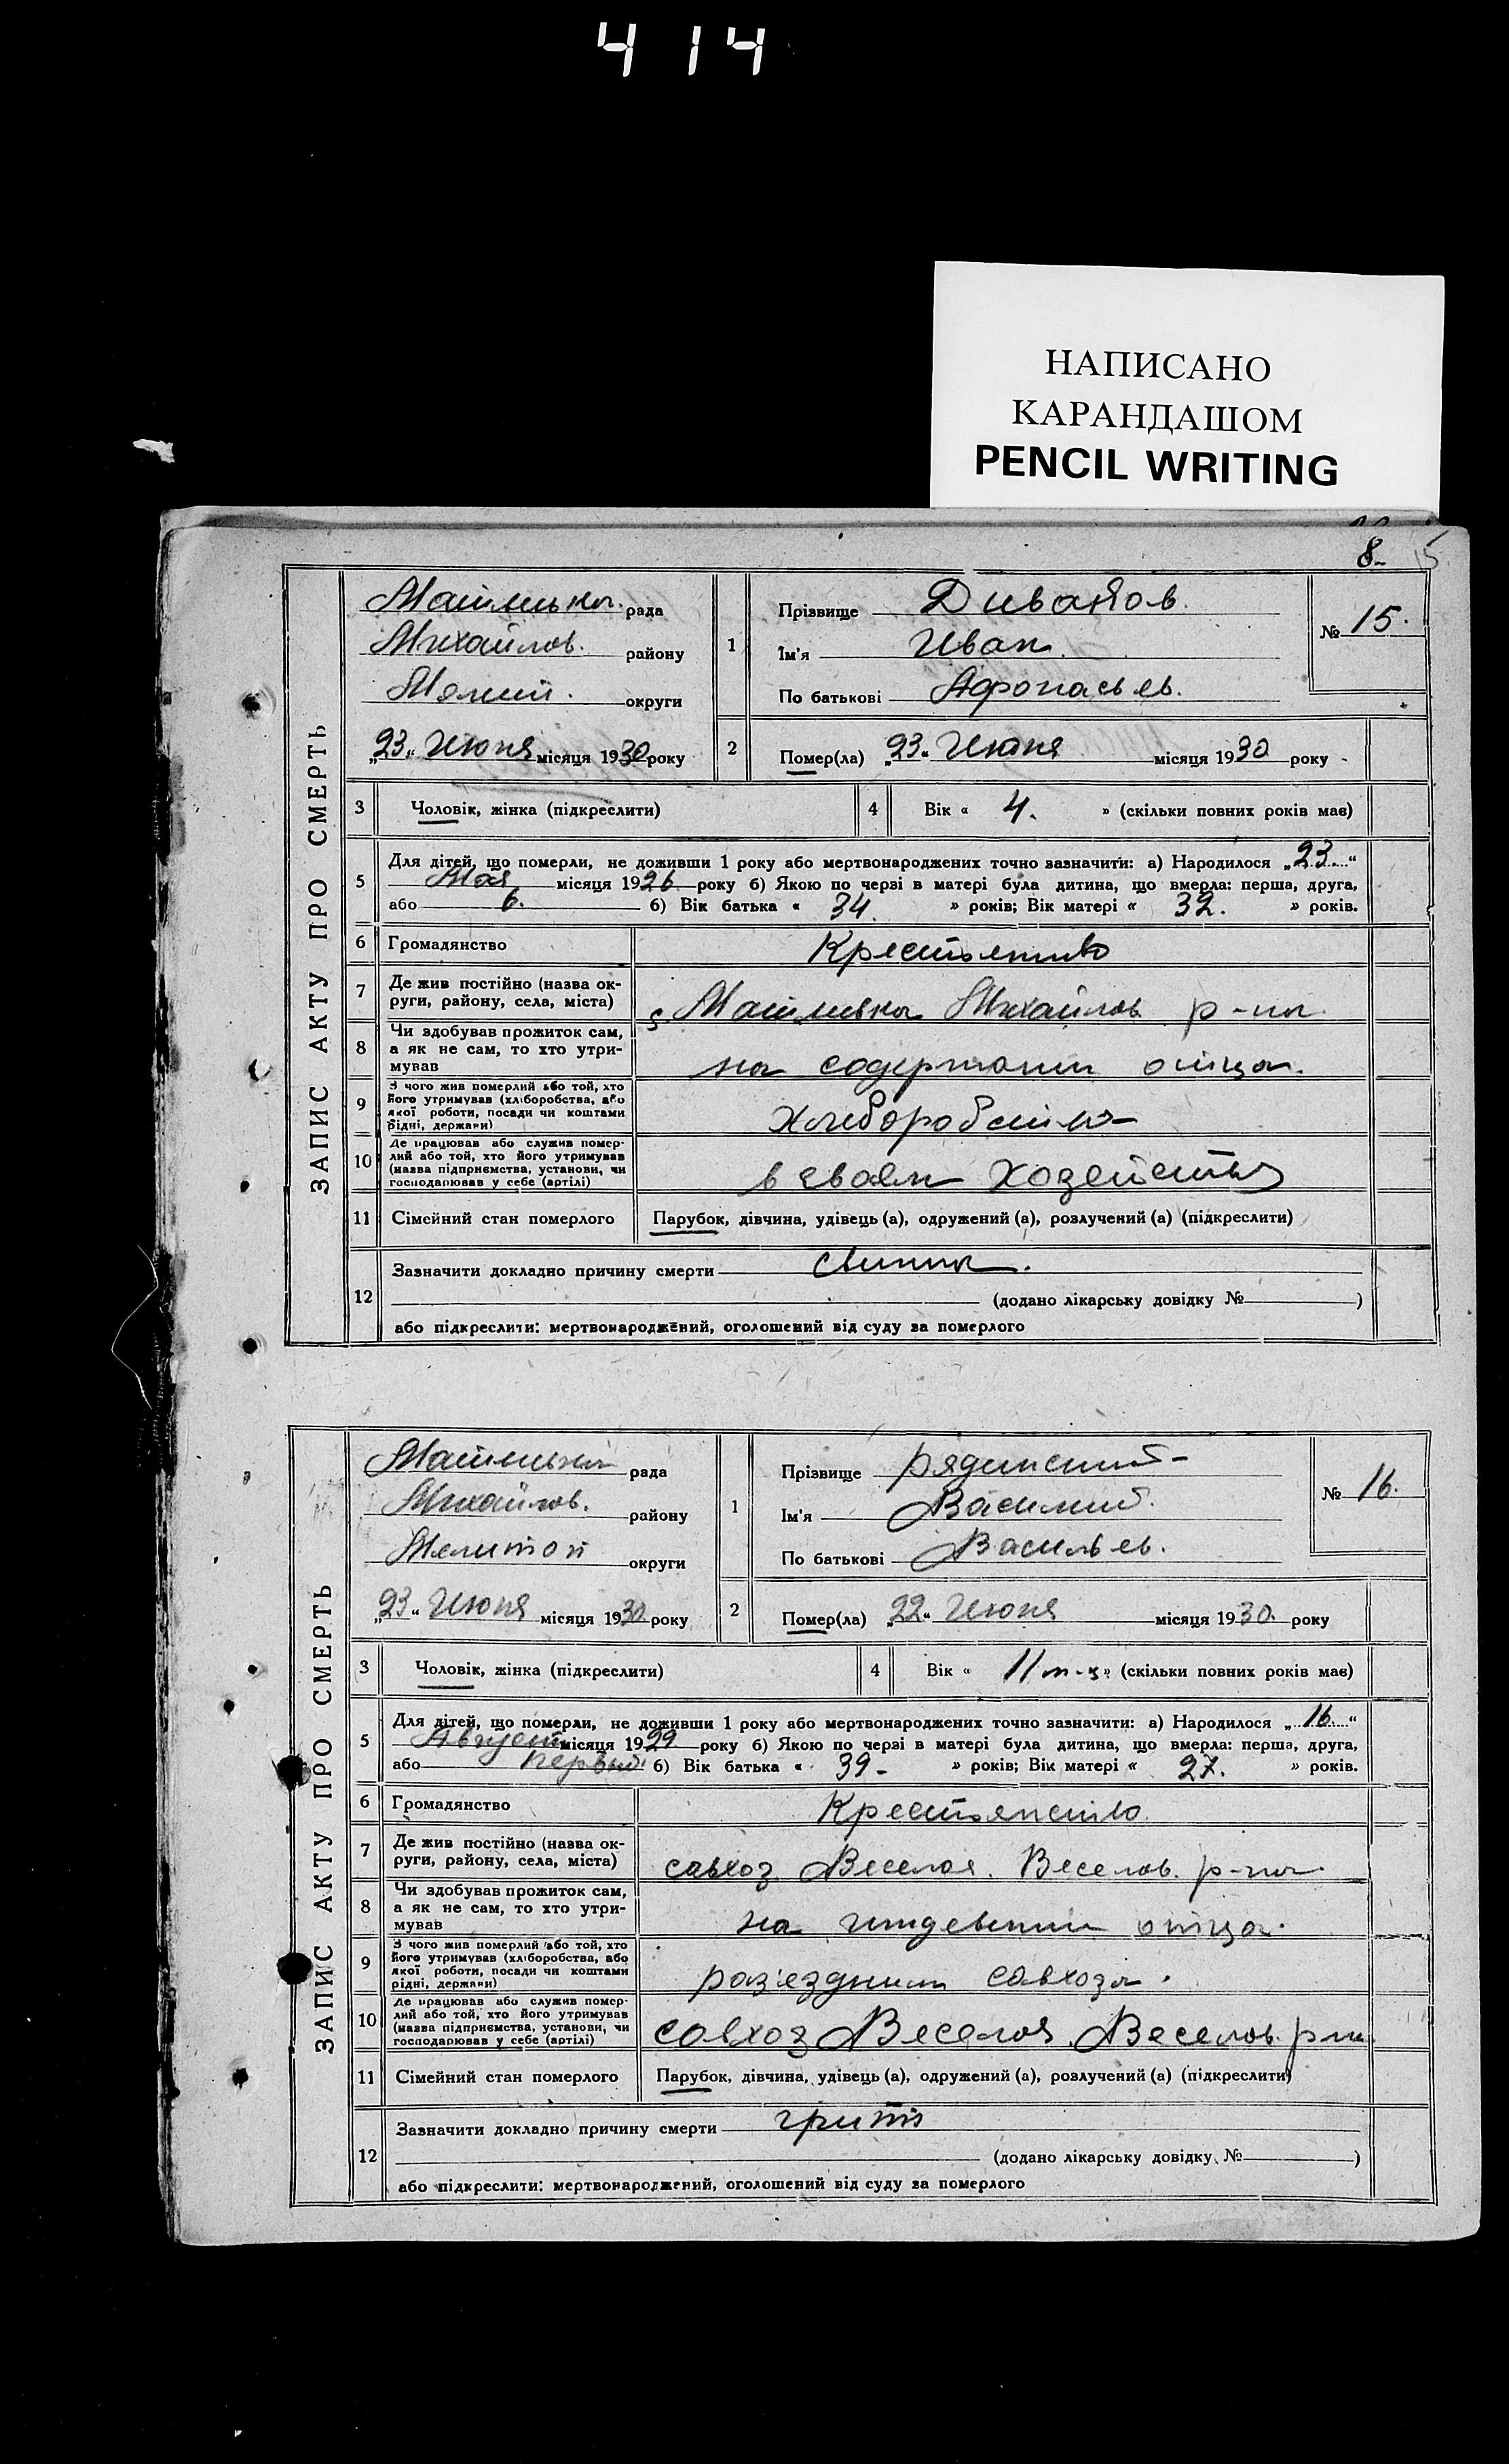 4 14
НАПИСАНО
КАРАНДАШОМ
PENCIL WRITING
8- 15
ЗАПИС АКТУ ПРО СМЕРТЬ
рада
Михайлов. району
округи
„23“ Июня місяця 1930 року
1 Прізвище
Ім'я Иван
По батькові Афонасьев.
№ 15.
2 Помер(ла) „23“ Июня місяця 1930 року
3 Чоловік, жінка (підкреслити)
4 Вік « 4. » (скільки повних років має)
5 Для дітей, що померли, не доживши 1 року або мертвонароджених точно зазначити: а) Народилося „23.“
Мая місяця 1926 року б) Якою по черзі в матері була дитина, що вмерла: перша, друга,
або 6. б) Вік батька « 34. » років; Вік матері « 32. » років.
6 Громадянство Крестьянство
7 Де жив постійно (назва ок-
руги, району, села, міста) Михайлов р-на
8 Чи здобував прожиток сам,
а як не сам, то хто утри-
мував на содержании отца.
9 З чого жив померлий або той, хто
його утримував (хліборобства, або
якої роботи, посади чи коштами
рідні, держави) Хлеборобство
10 Де працював або служив помер-
лий або той, хто його утримував
(назва підприємства, установи, чи
господарював у себе (артілі) в своем хозяйстве
11 Сімейний стан померлого Парубок, дівчина, удівець (а), одружений (а), розлучений (а) (підкреслити)
12 Зазначити докладно причину смерти
(додано лікарську довідку № )
або підкреслити: мертвонароджений, оголошений від суду за померлого
ЗАПИС АКТУ ПРО СМЕРТЬ
рада
Михайлов. району
Мелитоп округи
„23“ Июня місяця 1930 року
1 Прізвище Рядинский
Ім'я Василий.
По батькові Васильев.
№ 16.
2 Помер(ла) „22“ Июня місяця 1930 року
3 Чоловік, жінка (підкреслити)
4 Вік « 11 м-ц » (скільки повних років має)
5 Для дітей, що померли, не доживши 1 року або мертвонароджених точно зазначити: а) Народилося „16“
Август місяця 1929 року б) Якою по черзі в матері була дитина, що вмерла: перша, друга,
або первый б) Вік батька « 39 - » років; Вік матері « 27. » років.
6 Громадянство Крестьянство
7 Де жив постійно (назва ок-
руги, району, села, міста) савхоз Веселоя. Веселов. р-на
8 Чи здобував прожиток сам,
а як не сам, то хто утри-
мував на иждевении отца.
9 З чого жив померлий або той, хто
його утримував (хліборобства, або
якої роботи, посади чи коштами
рідні, держави) раз'ездним савхоза.
10 Де працював або служив помер-
лий або той, хто його утримував
(назва підприємства, установи, чи
господарював у себе (артілі) совхоз Веселоя Веселов. р-на
11 Сімейний стан померлого Парубок, дівчина, удівець (а), одружений (а), розлучений (а) (підкреслити)
12 Зазначити докладно причину смерти грипп
(додано лікарську довідку № )
або підкреслити: мертвонароджений, оголошений від суду за померлого